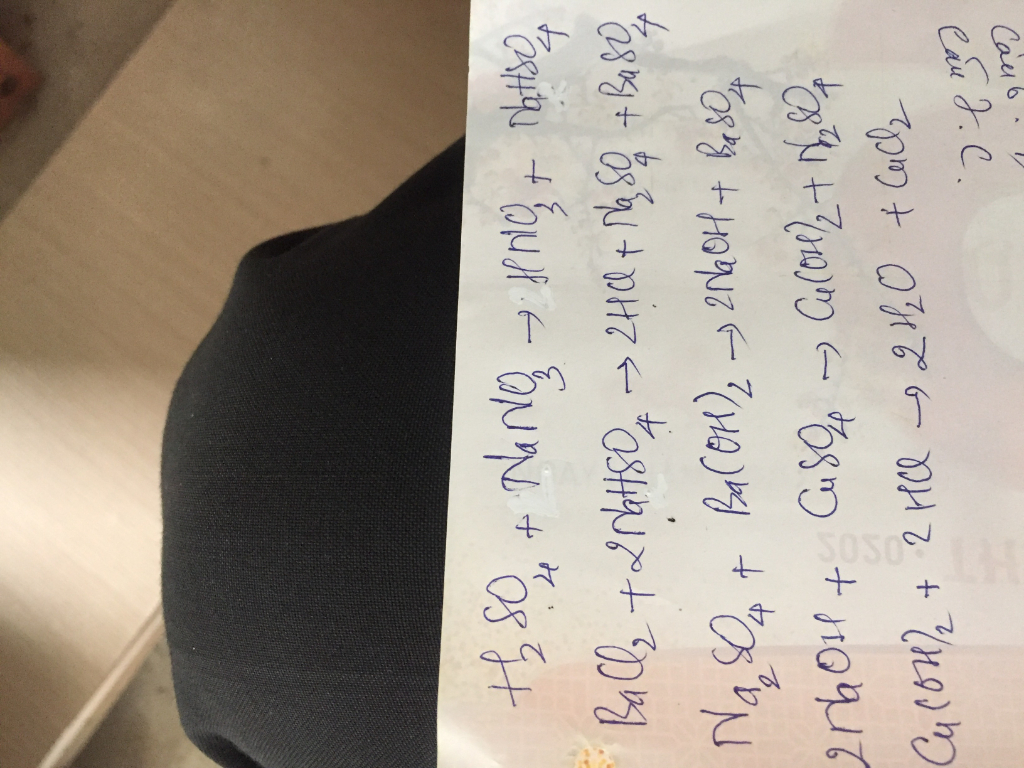 H₂SO₄ + NaNO₃ → HNO₃ + NaHSO₄
BaCl₂ + 2NaHSO₄ → 2HCl + Na₂SO₄ + BaSO₄
Na₂SO₄ + Ba(OH)₂ → 2NaOH + BaSO₄
2NaOH + CuSO₄ → Cu(OH)₂ + Na₂SO₄
Cu(OH)₂ + 2HCl → 2H₂O + CuCl₂
Câu 7. C.
Câu 6.
2020.